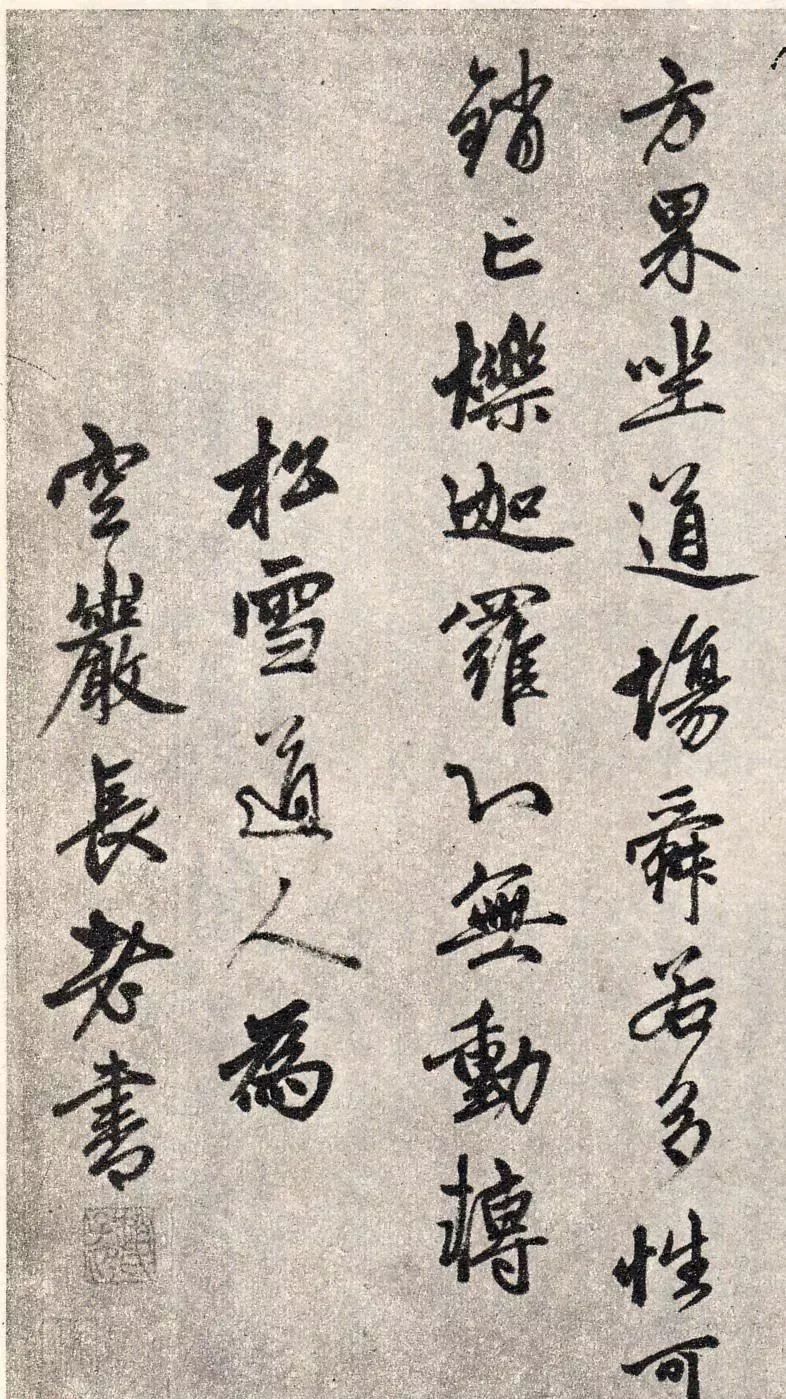 方界坐道場舜若多性可
銷亡爍迦羅心無動轉
松雪道人為
空巖長老書